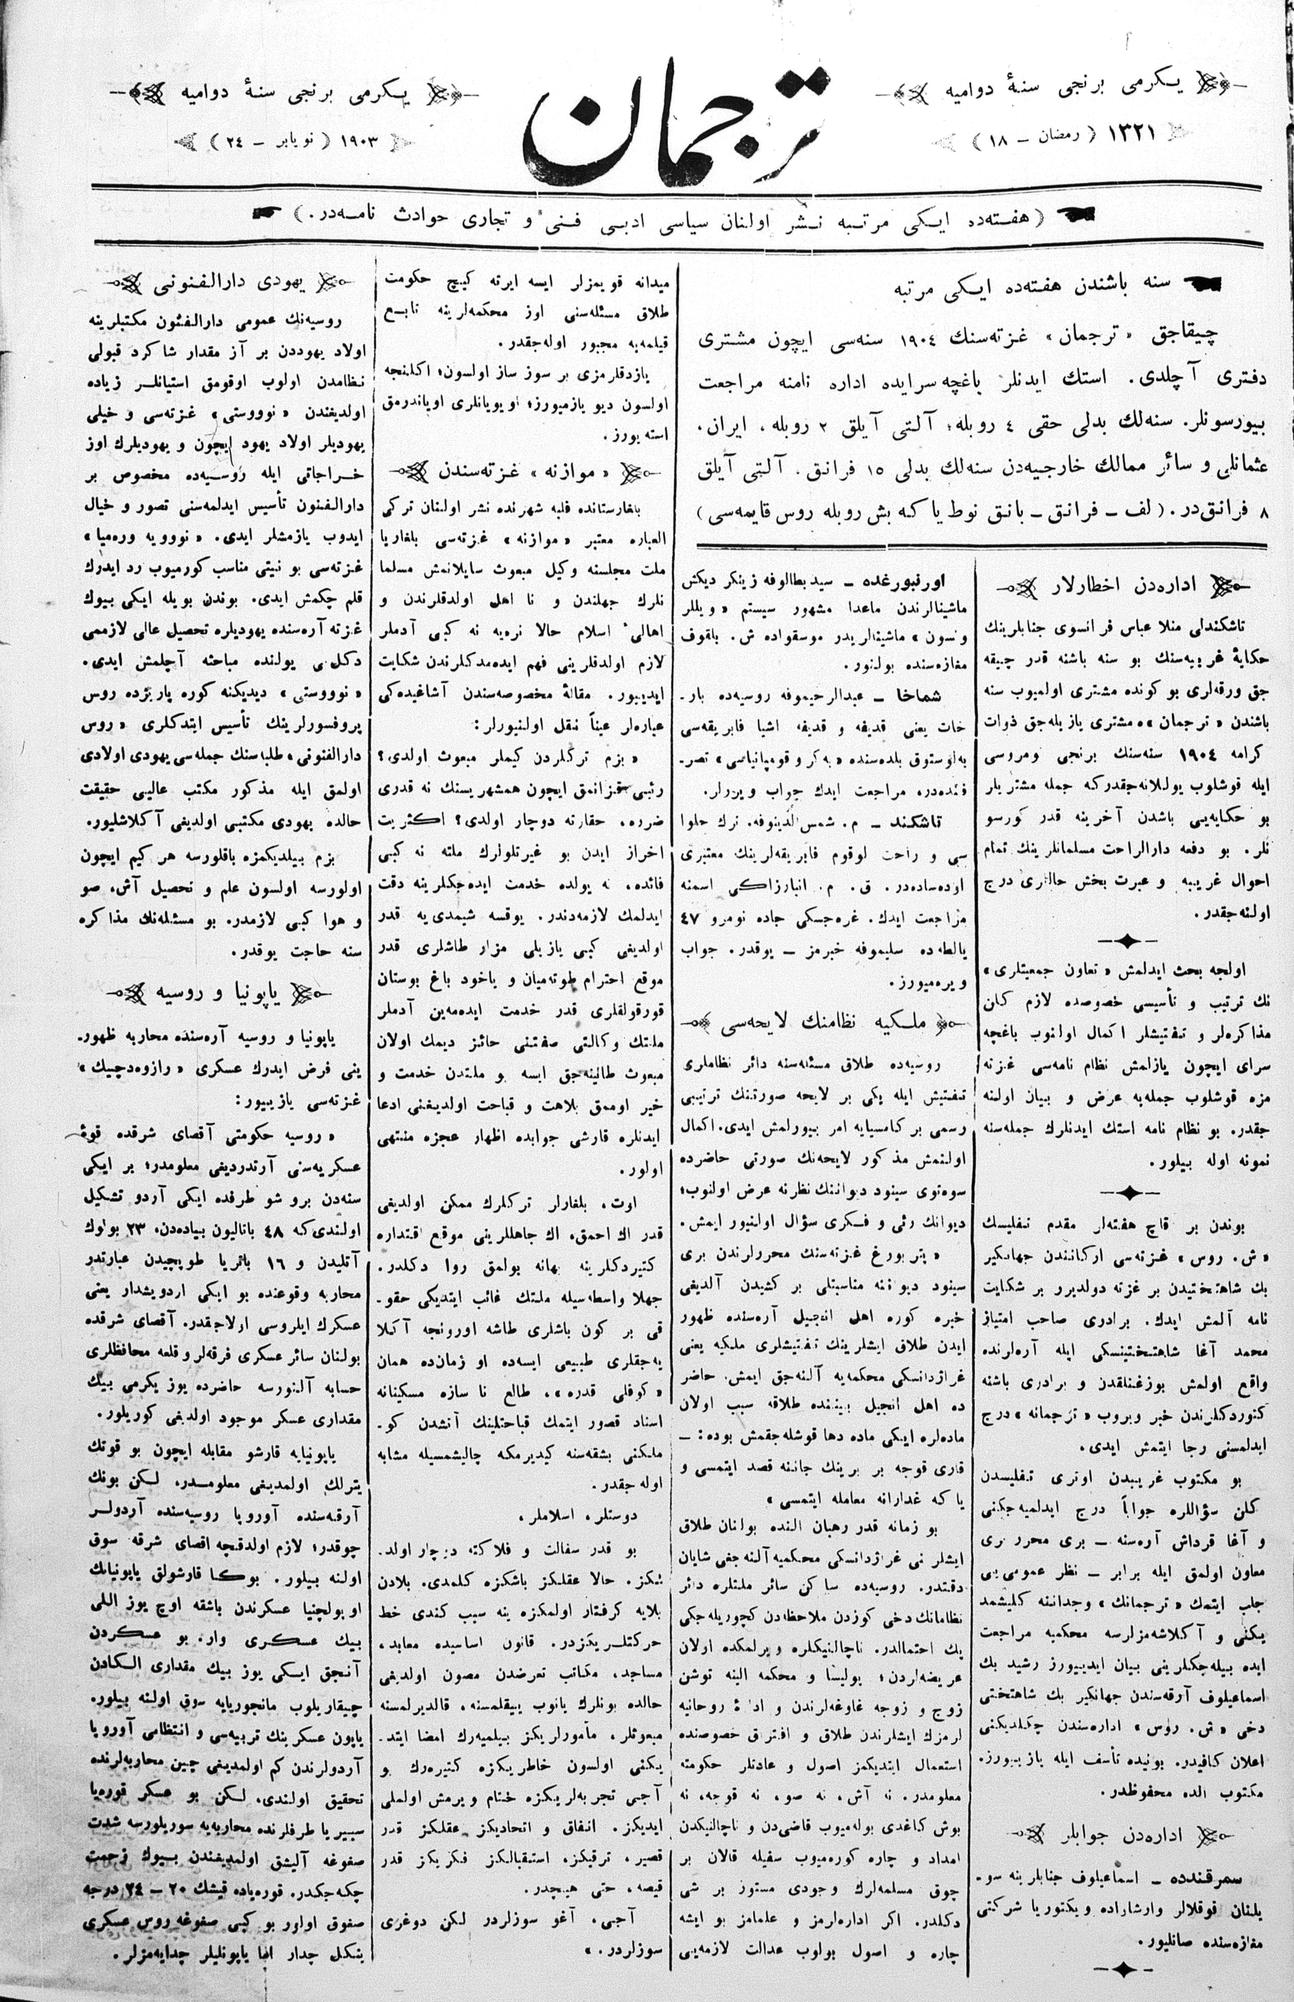 یكرمی برنجی سنهٔ دوامیه
١٣٢١ ( رمضان – ١٨ )
ترجمان
یكرمی برنجی سنهٔ دوامیه
١٩٠٣ ( نویابر – ٢٤ )
( هفته‌ده ایكی مرتبه نشر اولنان سیاسی ادبی فنی و تجاری حوادث نامه‌در. )
سنه باشندن هفته‌ده ایكی مرتبه
چیقاجق « ترجمان » غزته‌سنك ١٩٠٤ سنه‌سی ایچون مشتری
دفتری آچلدی. استك ایدنلر باغچه‌سرایده اداره نامنه مراجعت
بیورسونلر. سنه‌لك بدلی حقی ٤ روبله؛ آلتی آیلق ٢ روبله، ایران،
عثمانلی و سائر ممالك خارجیه‌دن سنه‌لك بدلی ١٥ فرانق. آلتی آیلق
٨ فرانق‌در. ( لف – فرانق – بانق نوط یاكه بش روبله روس قایمه‌سی )
اداره‌دن اخطارلار
تاشكندلی منلا عباس فرانسوی جنابلرینك
حكایهٔ غریبه‌سنك بو سنه باشنه قدر چیقه
جق ورقه‌لری بو كونده مشتری اولمیوب سنه
باشندن « ترجمان »ه مشتری یازیله‌جق ذوات
كرامه ١٩٠٤ سنه‌سنك برنجی نومروسی
ایله قوشلوب یوللانه‌جقدركه جمله مشتریلر
بو حكایه‌یی باشدن آخرینه قدر كورسو
نلر. بو دفعه دارالراحت مسلمانلرینك تمام
احوال غریبه و عبرت بخش حاللری درج
اولنه‌جقدر.
اولجه بحث ایدلمش « تعاون جمعیتلری »
نك ترتیب و تأسیسی خصوصده لازم كلن
مذاكره‌لر و تفتیشلر اكمال اولنوب باغچه
سرای ایچون یازلمش نظام نامه‌سی غزته
مزه قوشلوب جمله‌یه عرض و بیان اولنه
جقدر. بو نظام نامه استك ایدنلرك جمله‌سنه
نمونه اوله بیلور.
بوندن بر قاچ هفته‌لر مقدم تفلیسك
« ش. روس » غزته‌سی اركانندن جهانكیر
بك شاهتختیدن بر غزته دولدیرو بر شكایت
نامه آلمش ایدك. برادری صاحب امتیاز
محمد آغا شاهتختینسكی ایله آره‌لرنده
واقع اولمش بوزغنلقدن و برادری باشنه
كتوردكلرندن خبر ویروب « ترجمانه » درج
ایدلمسنی رجا ایتمش ایدی.
بو مكتوب غریبدن اوتری تفلیسدن
كلن سؤاللره جواباً درج ایدلمیه‌جكنی
و آغا قرداش آره‌سنه – بری محرر بری
معاون اولمق ایله برابر – نظر عمومی‌یی
جلب ایتمك « ترجمانك » وجداننه كلیشمد
یكنی و آكلاشه‌مزلرسه محكمه‌یه مراجعت
ایده بیله‌جكلرینی بیان ایدییورز رشید بك
اسماعیلوف آرقه‌سندن جهانكیر بك شاهتختی
دخی « ش. روس » اداره‌سندن چكلدیكنی
اعلان كافیدر. بونیده تأسف ایله یازییورز.
مكتوب الده محفوظدر.
اداره‌دن جوابلر
سمرقنده – اسماعیلوف جنابلرینه سو-
یلنان قوقلالر وارشاراده ویكتوریا شركتی
مغازه‌سنده صاتلیور.
اورنبورغده – سید بطالوفه زینكر دیكش
ماشینالرندن ماعدا مشهور سیستم « ویللر
ونسون » ماشینالریدر موسقواده ش. بلقوف
مغازه‌سنده بولنور.
شماخا – عبدالرحیموفه روسیه‌ده بار-
خات یعنی قدیفه و قدیفه اشیا فابریقه‌سی
بلوستوق بلده‌سنده « بكر و قومپانیاسی » تصر-
فنده‌در، مراجعت ایدك جواب ویررلر.
تاشكند – م. شمس‌الدینوفه. ترك حلوا
سی و راحت لوقوم فابریقه‌لرینك معتبری
اوده‌ساده‌در. ق. م. انبارزاكی اسمنه
مراجعت ایدك. غره‌جسكی جاده نومرو ٤٧
یالطه‌ده سلیموفه خبرمز – یوقدر. جواب
ویره‌میورز.
ملكیه نظامنك لایحه‌سی
روسیه‌ده طلاق مسئله‌سنه دائر نظاملری
تفتیش ایله یكی بر لایحه صورتنك ترتیبی
رسمی بر كامسیایه امر بیورلمش ایدی. اكمال
اولنمش مذكور لایحه‌نك صورتی حاضرده
سوه‌توی سینود دیواننك نظرنه عرض اولنوب؛
دیوانك رئی و فكری سؤال اولنیور ایمش.
« پتربورغ غزته‌سنك محررلرندن بری
سینود دیواننه مناسبتلی بر كشیدن آلدیغی
خبره كوره اهل انجیل آره‌سنده ظهور
ایدن طلاق ایشلرینك تفتیشلری ملكیه یعنی
غراژدانسكی محكمه‌یه آلنه‌جق ایمش. حاضر
ده اهل انجیل بیننده طلاقه سبب اولان
ماده‌لره ایكی ماده دها قوشله‌جقمش بوده: –
قاری قوجه بر برینك جاننه قصد ایتمسی و
یاكه غدارانه معامله ایتمسی »
بو زمانه قدر رهبان النده بولنان طلاق
ایشلرنی غراژدانسكی محكمیه آلنه‌جغی شایان
دقتدر. روسیه‌ده ساكن سائر ملتلره دائر
نظاماتك دخی كوزدن ملاحظه‌دن كچوریله‌جكی
پك احتمالدر. ناچالنیكلره ویرلمكده اولان
عریضه‌لردن؛ پولیسا و محكمه الینه توشن
زوج و زوجه غاوغه‌لرندن و ادارهٔ روحانیه
لرمزك ایشلرندن طلاق و افتراق خصوصنده
استعمال ایتدیكمز اصول و عادتلر حكومته
معلومدر. نه آش، نه صو، نه قوجه، نه
بوش كاغدی بوله‌میوب قاضی‌دن و ناچالنیكدن
امداد و چاره كوره‌میوب سفیله قالان بر
چوق مسلمه‌لرك وجودی مستور بر شی
دكلدر. اكر اداره‌لرمز و علمامز بو ایشه
چاره و اصول بولوب عدالت لازمه‌یی
میدانه قویمزلر ایسه ایرته كیچ حكومت
طلاق مسئله‌سنی اوز محكمه‌لرینه تابع
قیلمه‌یه مجبور اوله‌جقدر.
یازدقلرمزی بر سوز ساز اولسون؛ اكلنجه
اولسون دیو یازمیورز؛ اویویانلری اویاندرمق
استه‌یورز.
« موازنه » غزته‌سندن
بلغارستانده فلبه شهرنده نشر اولنان تركی
العباره معتبر « موازنه » غزته‌سی بلغاریا
ملت مجلسنه وكیل مبعوث سایلانمش مسلما
نلرك جهلندن و نا اهل اولدقلرندن و
اهالیٔ اسلام حالا نره‌یه نه كبی آدملر
لازم اولدقلرینی فهم ایده‌مدكلرندن شكایت
ایدییور. مقالهٔ مخصوصه‌سندن آشاغیده‌كی
عباره‌لر عیناً نقل اولنیورلر:
« بزم تركلردن كیملر مبعوث اولدی؟
رئبی قزانمق ایچون همشهریسنك نه قدری
ضرره، حقارته دوچار اولدی؟ اكثریت
احراز ایدن بو غیرتلولرك ملته نه كبی
فائده، نه یولده خدمت ایده‌جكلرینه دقت
ایدلمك لازمه‌دندر. یوقسه شیمدی‌یه قدر
اولدیغی كبی یازیلی مزار طاشلری قدر
موقع احترام طوته‌میان و یاخود باغ بوستان
قورقولقلری قدر خدمت ایده‌مه‌ین آدملر
ملتك وكالتی صفتنی حائز دیمك اولان
مبعوث طانینه‌جق ایسه بو ملتدن خدمت و
خیر اوممق بلاهت و قباحت اولدیغنی ادعا
ایدنلره قارشی جوابده اظهار عجزه منتهی
اولور.
اوت، بلغارلر تركلرك ممكن اولدیغی
قدر اك احمق، اك جاهللرینی موقع اقتداره
كتیردكلرینه بهانه بولمق روا دكلدر.
جهلا واسطه‌سیله ملتك غائب ایتدیكی حقو-
قی بر كون باشلری طاشه اورونجه آكلا
یه‌جقلری طبیعی ایسه‌ده او زمان‌ده همان
« كوفلی قدره »، طالع نا سازه مسكینانه
اسناد قصور ایتمك قباحتلینك آتشدن كو-
ملكنی بشقه‌سنه كیدیرمكه چالیشمسیله مشابه
اوله‌جقدر.
دوستلر، اسلاملر،
بو قدر سفالت و فلاكته دوچار اولد-
ڭكز. حالا عقلكز باشكزه كلمدی. بلادن
بلایه كرفتار اولمكزه ینه سبب كندی خط
حركتلریكزدر. قانون اساسیده معابد،
مساجد، مكاتب تعرضدن مصون اولدیغی
حالده بونلرك یانوب ییقلمسنه، قالدیرلمسنه
مبعوثلر، مأمورلریكز بیلمیه‌رك امضا ایتد-
یكنی اولسون خاطریكزه كتیره‌رك بو
آجی تجربه‌لریكزه ختام ویرمش اولملی
ایدیكز. اتفاق و اتحادیكز عقلكز قدر
قصیر، ترقیكز، استقبالكز فكریكز قدر
قیصه، حتی هیچدر.
آجی، آغو سوزلردر لكن دوغری
سوزلردر. »
یهودی دارالفنونی
روسیه‌نك عمومی دارالفنون مكتبلرینه
اولاد یهوددن بر آز مقدار شاكرد قبولی
نظامدن اولوب اوقومق استیانلر زیاده
اولدیغندن « نوووستی » غزته‌سی و خیلی
یهودیلر اولاد یهود ایچون و یهودیلرك اوز
خراجاتی ایله روسیه‌ده مخصوص بر
دارالفنون تأسیس ایدلمه‌سنی تصور و خیال
ایدوب یازمشلر ایدی. « نوویه وره‌میا »
غزته‌سی بو نیتی مناسب كورمیوب رد ایدرك
قلم چكمش ایدی. بوندن بویله ایكی بیوك
غزته آره‌سنده یهودیلره تحصیل عالی لازممی
دكلمی یولنده مباحثه آچلمش ایدی.
« نوووستی » دیدیكنه كوره پاریژده روس
پروفسورلرینك تأسیس ایتدكلری « روس
دارالفنونی » طلبه‌سنك جمله‌سی یهودی اولادی
اولمق ایله مذكور مكتب عالیی حقیقت
حالده یهودی مكتبی اولدیغی آكلاشلیور.
بزم بیلدیكمزه باقلورسه هر كیم ایچون
اولورسه اولسون علم و تحصیل آش، صو
و هوا كبی لازمدر. بو مسئله‌نك مذاكره
سنه حاجت یوقدر.
یاپونیا و روسیه
یاپونیا و روسیه آره‌سنده محاربه ظهور-
ینی فرض ایدرك عسكری « رازوه‌دچیك »
غزته‌سی یازییور:
« روسیه حكومتی آقصای شرقده قوهٔ
عسكریه‌سنی آرتدردیغی معلومدر؛ بر ایكی
سنه‌دن برو شو طرفده ایكی آردو تشكیل
اولندی‌كه ٤٨ باتالیون پیاده‌دن، ٢٣ بولوك
آتلیدن و ١٦ باتریا طوپچیدن عبارتدر
محاربه وقوعنده بو ایكی اردویشدار یعنی
عسكرك ایلروسی اولاجقدر. آقصای شرقده
بولنان سائر عسكری فرقه‌لر و قلعه محافظلری
حسابه آلنورسه حاضرده یوز یكرمی بیك
مقداری عسكر موجود اولدیغی كوریلور.
یاپونیایه قارشو مقابله ایچون بو قوتك
یترلك اولمدیغی معلومدر، لكن بونك
آرقه‌سنده آوروپا روسیه‌سنده آردولر
چوقدر؛ لازم اولدقچه اقصای شرقه سوق
اولنه بیلور. بوكا قارشولق یاپونیانك
اوبولچنیا عسكرندن باشقه اوچ یوز اللی
بیك عسكری وار. بو عسكردن
آنجق ایكی یوز بیك مقداری الكادن
چیقاریلوب مانجوریایه سوق اولنه بیلور.
یاپون عسكرینك تربیه‌سی و انتظامی آوروپا
آردولرندن كم اولمدیغی چین محاربه‌لرنده
تحقیق اولندی، لكن بو عسكر قوره‌یا
سیبریا طرفلرنده محاربه‌یه سوریلورسه شدت
صفوغه آلیشق اولمدیغندن بیوك زحمت
چكه‌جكدر. قوره‌یاده قیشك ٢٠ – ٢٤ درجه
صفوق اولور بو كبی صفوغه روس عسكری
یشكل چدار اما یاپونلیلر چدایه‌مزلر.